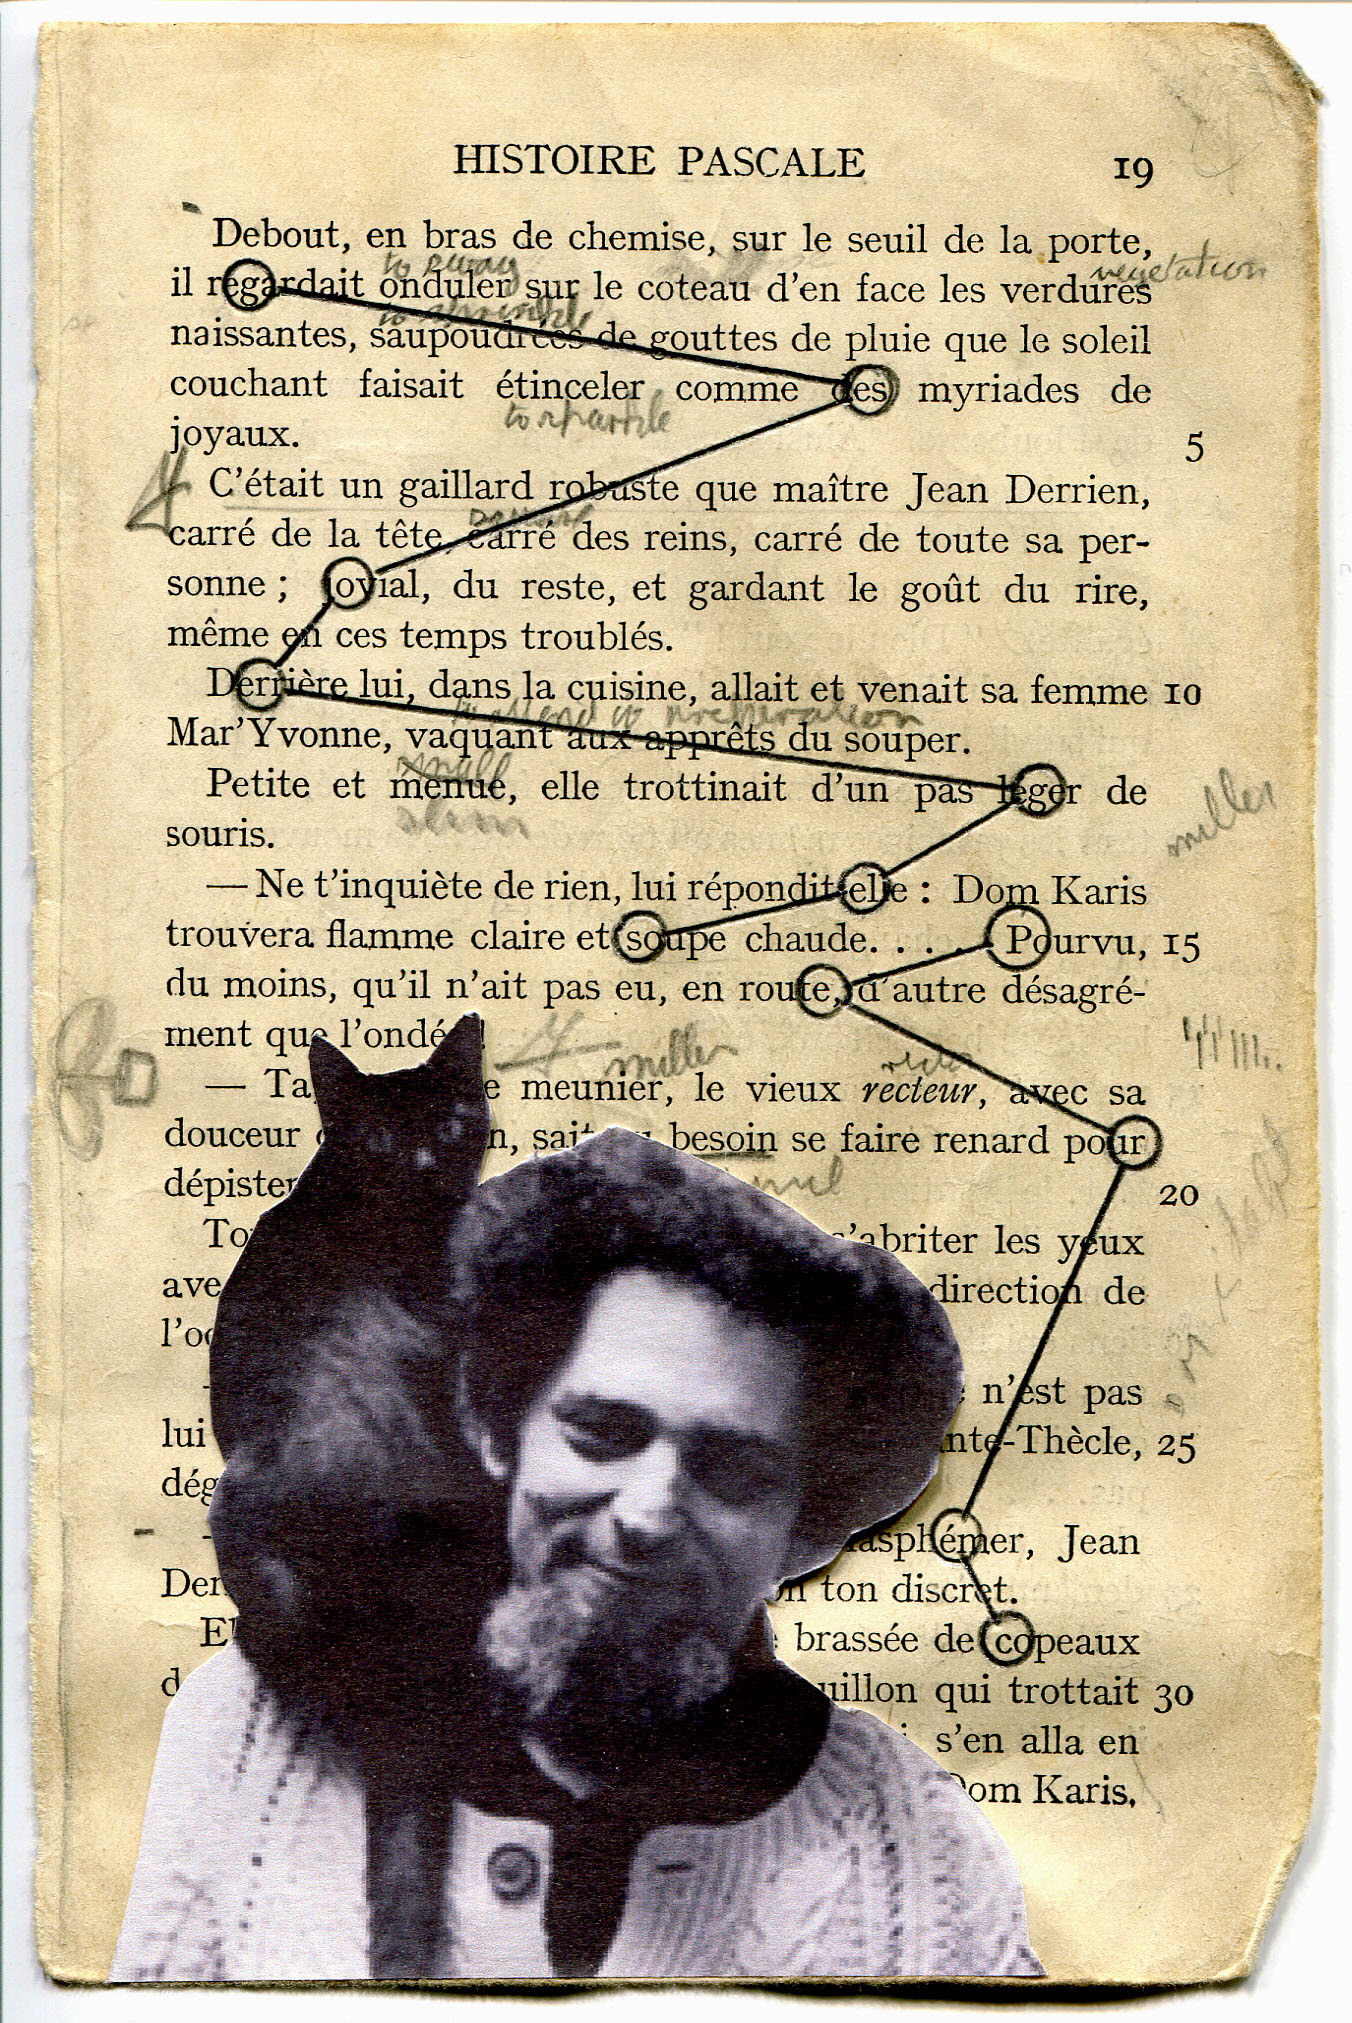 HISTOIRE PASCALE 19
Debout, en bras de chemise, sur le seuil de la porte,
to sway
vegetation
il regardait onduler sur le coteau d'en face les verdures
to sprinkle
naissantes, saupoudrées de gouttes de pluie que le soleil
couchant faisait étinceler comme des myriades de
to sparkle
joyaux. 5
C'était un gaillard robuste que maître Jean Derrien,
square
carré de la tête, carré des reins, carré de toute sa per-
sonne ; jovial, du reste, et gardant le goût du rire,
même en ces temps troublés.
Derrière lui, dans la cuisine, allait et venait sa femme 10
to attend to preparation
Mar'Yvonne, vaquant aux apprêts du souper.
small
Petite et menue, elle trottinait d'un pas léger de
slim
miller
souris.
— Ne t'inquiète de rien, lui répondit elle : Dom Karis
trouvera flamme claire et soupe chaude. . . . . Pourvu, 15
du moins, qu'il n'ait pas eu, en route, d'autre désagré-
ment que l'ondée !
miller
— Ta e meunier, le vieux recteur, avec sa
douceur n, sait besoin se faire renard pour
dépister 20
s'abriter les yeux
direction de
n'est pas
lui -Thècle, 25
asphémer, Jean
ton discret.
brassée de copeaux
qui trottait 30
s'en alla en
Dom Karis.